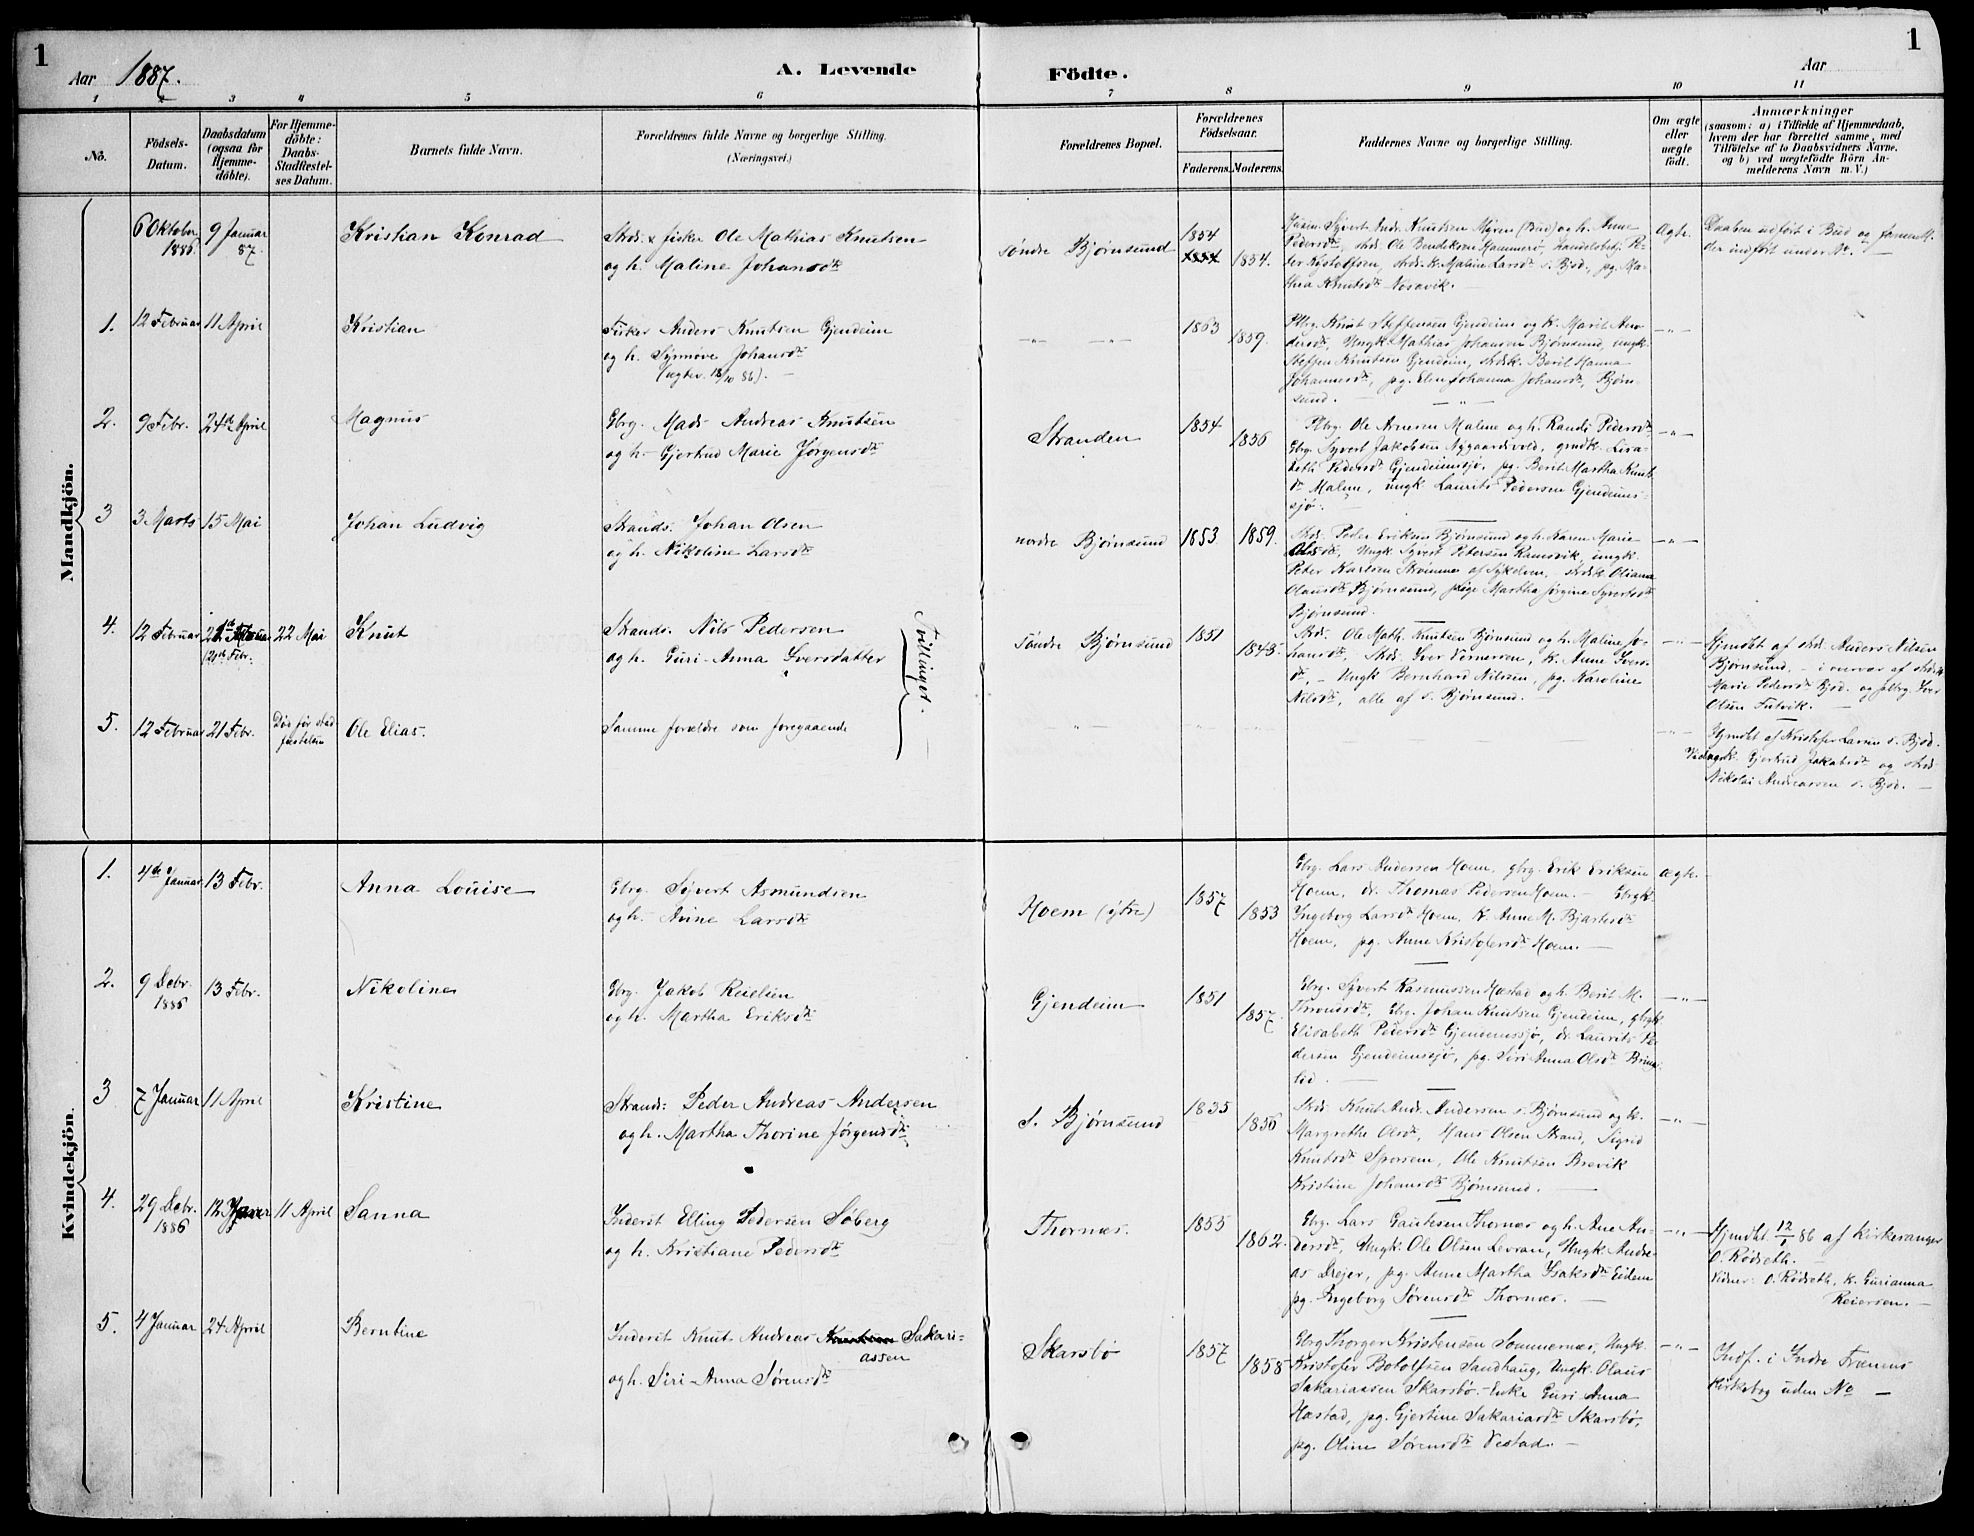 1
1
Aar 1887.
A. Levende
Födte.
Aar
1 2 3 4 5 6 7 8 9 10 11
No.
Födsels-
Datum.
Daabsdatum
(ogsaa for
Hjemme-
döbte).
For Hjemme-
döbte:
Daabs-
Stadfæstel-
ses Datum.
Barnets fulde Navn.
Forældrenes fulde Navne og borgerlige Stilling.
(Næringsvei.)
Forældrenes Bopæl.
Forældrenes
Födselsaar.
Faderens. Moderens.
Faddernes Navne og borgerlige Stilling.
Om ægte
eller
uægte
födt.
Anmærkninger
(saasom: a) i Tilfælde af Hjemmedaab,
hvem der har forrettet samme, med
Tilföielse af to Daabsvidners Navne.
og b) ved uægtefödte Börn An-
melderens Navn m. V.)
Mandkjön.
6 Oktober
1886
9 Januar
87.
Kristian Konrad
Strds. & fisker Ole Mathias Knutsen
og h. Maline Johansdtr
søndre Bjørnsund
1854
1854.
Sivert Andr. Knutsen Myren (Bud) og h. Anne
Pedersdtr, strds. Ole Bendiksen Hammerø, handelsbetj. Pe-
k. Maline Larsdtr s. Bjsd., pg. Ma-
thea Knutsdtr Nosavik.
Ægte.
Daaben udført i Bud og
der indført under No. —
1.
12 Februar
11 April
Kristian
Fisker Anders Knutsen Gjendeim
og h. Synnøve Johansdtr
(ægtev. 18/10 86). —
—"— —"—
1863
1859.
Pbrg. Knut Steffensen Gjendeim og k. Marit An-
dersdtr, Ungk. Mathias Johansen Bjørnsund, ungk.
Steffen Knutsen Gjendeim, strdsk. Berit Hanna
Johannesdtr, pg. Elen Johanna Johansdtr, Bjørn-
sund. —
—"—
2.
9 Febr.
24th April
Magnus
Gbrg. Mads Andreas Knutsen
og h. Gjertrud Marie Jørgensdtr
Stranden
1854
1856
Pbrg. Ole Arnesen Malme og h. Randi Pedersdtr
Gbrg. Syvert Jakobsen Nygaardsvold, grmdk. Lisa-
beth Pedersdtr Gjendeimssjø, pg. Berit Martha Knuts-
dtr Malme, ungk. Laurits Pedersen Gjendeims-
sjø.
—"—
3
3 Marts
15 Mai
Johan Ludvig
Strands. Johan Olsen
og h. Nikoline Larsdtr
nordre Bjørnsund
1853
1859.
Strds. Peder Eriksen Bjørnsund og h. Karen Marie
Olsdtr, Ungk. Syvert Petersen Ramsvik, ungk.
Peter Karlsen Strømmen af Sykelven, strdsk. Oliana
Olausdtr Bjørnsund, pige Martha Jørgine Syvertsdtr
Bjørnsund.
—"—
4.
12 Februar
21th Februar
(21th Febr.
22 Mai
Knut
Strands. Nils Pedersen
og h. Guri-Anna Iversdatter
Tvillinger.
søndre Bjørnsund
1851
1845.
Strds. Ole Math. Knutsen Bjørnsund og h. Maline Jo-
hansdtr, Strds. Iver Vernersen, k. Anne Ivers-
dtr, — Ungk Bernhard Nilsen, pg. Karoline
Nilsdtr, alle af s. Bjørnsund. —
—"—
Hjmdbt af strd. Anders Nilsen
Bjørnsund, — i nærvær af strdsk
Marie Pedersdtr Bjsd. og pbrg. Iver
Olsen Futvik. —
5.
12 Februar
21 Febr.
Død før stad
fæstelsen
Ole Elias.
Samme forældre som foregaaende
" —
Hjmdbt af Kristofer Larsen s. Bjsd.
Vidner: k. Gjertrud Jakobsdtr og strds
Nikolai Andreassen s. Bjsd. —
Kvindekjön.
1.
4th Januar
13 Febr.
Anna Louise
Gbrg. Syvert Asmundsen
og h. Anne Larsdtr
Hoem (ytre)
1857
1853
Gbrg. Lars Andersen Hoem, gbrg. Erik Eriksen
Hoem, dr. Thomas Pedersen Hoem. — Gbrgk.
Ingeborg Larsdtr Hoem, k. Anne M. Bjartesdtr
Hoem, pg. Anne Kristofersdtr Hoem. —
Ægte.
2.
9 Debr.
1886
13 Febr.
Nikoline
Gbrg. Jakob Reielsen
og h. Martha Eriksdtr
Gjendeim
1851
1857.
Gbrg. Syvert Rasmussen Hæstad og h. Berit M.
Thronsdtr, Gbrg. Johan Knutsen Gjendeim, gbrgk
Elisabeth Pedersdtr Gjendemssjø, dr. Laurits Pe-
dersen Gjendeimssjø, pg. Siri Anna Olsdtr Brime-
lid. —
—"—
3
7 Januar
11 April
Kristine
Strands: Peder Andreas Andersen
og h. Martha Thorine Jørgensdtr
S. Bjørnsund
1835
1856
Strds. Knut Andr. Andersen s. Bjørnsund og h.
Margrethe Olsdtr, Hans Olsen Strand, Sigrid
Knutsdtr Sporsem, Ole Knutsen Brevik
Kristine Johansdtr Bjørnsund. —
—"—
4.
29 Debr.
1886
12 Januar
11 April
Sanna
Inderst Elling Pedersen Søberg
og h. Kristiane Pedersdtr
Thornæs.
1855
1862.
Gbrg. Lars Gautesen Thornæs og h. Ane An-
dersdtr, Ungk. Ole Olsen Levran, Ungk. Andre-
as Drejer, pg. Anne Martha Isaksdtr Eidem
pg. Ingeborg Sørensdtr Thornæs. —
—"—
Hjmdbt. 12/1 86 af Kirkesanger
O. Rødseth. —
Vidner: O. Rødseth, k. Gurianna
Reiersen. —
5.
4 Januar
24 April
Berntine
Inderst Knut Andreas Sakari-
assen
og h. Siri-Anna Sørensdtr
Skarsbø
1857
1858
Gbrg Thorger Kristensen Sommernæs, Ungk.
Kristofer Botolfsen Sandhaug, Ungk. Olaus
Sakariassen Skarsbø. — Enke Guri Anna
Hæstad, pg. Gjertine Sakariasdtr Skarsbø,
pg. Oline Sørensdtr Vestad. —
—"—
Indf. i Indre Frænens
Kirkebog uden No —